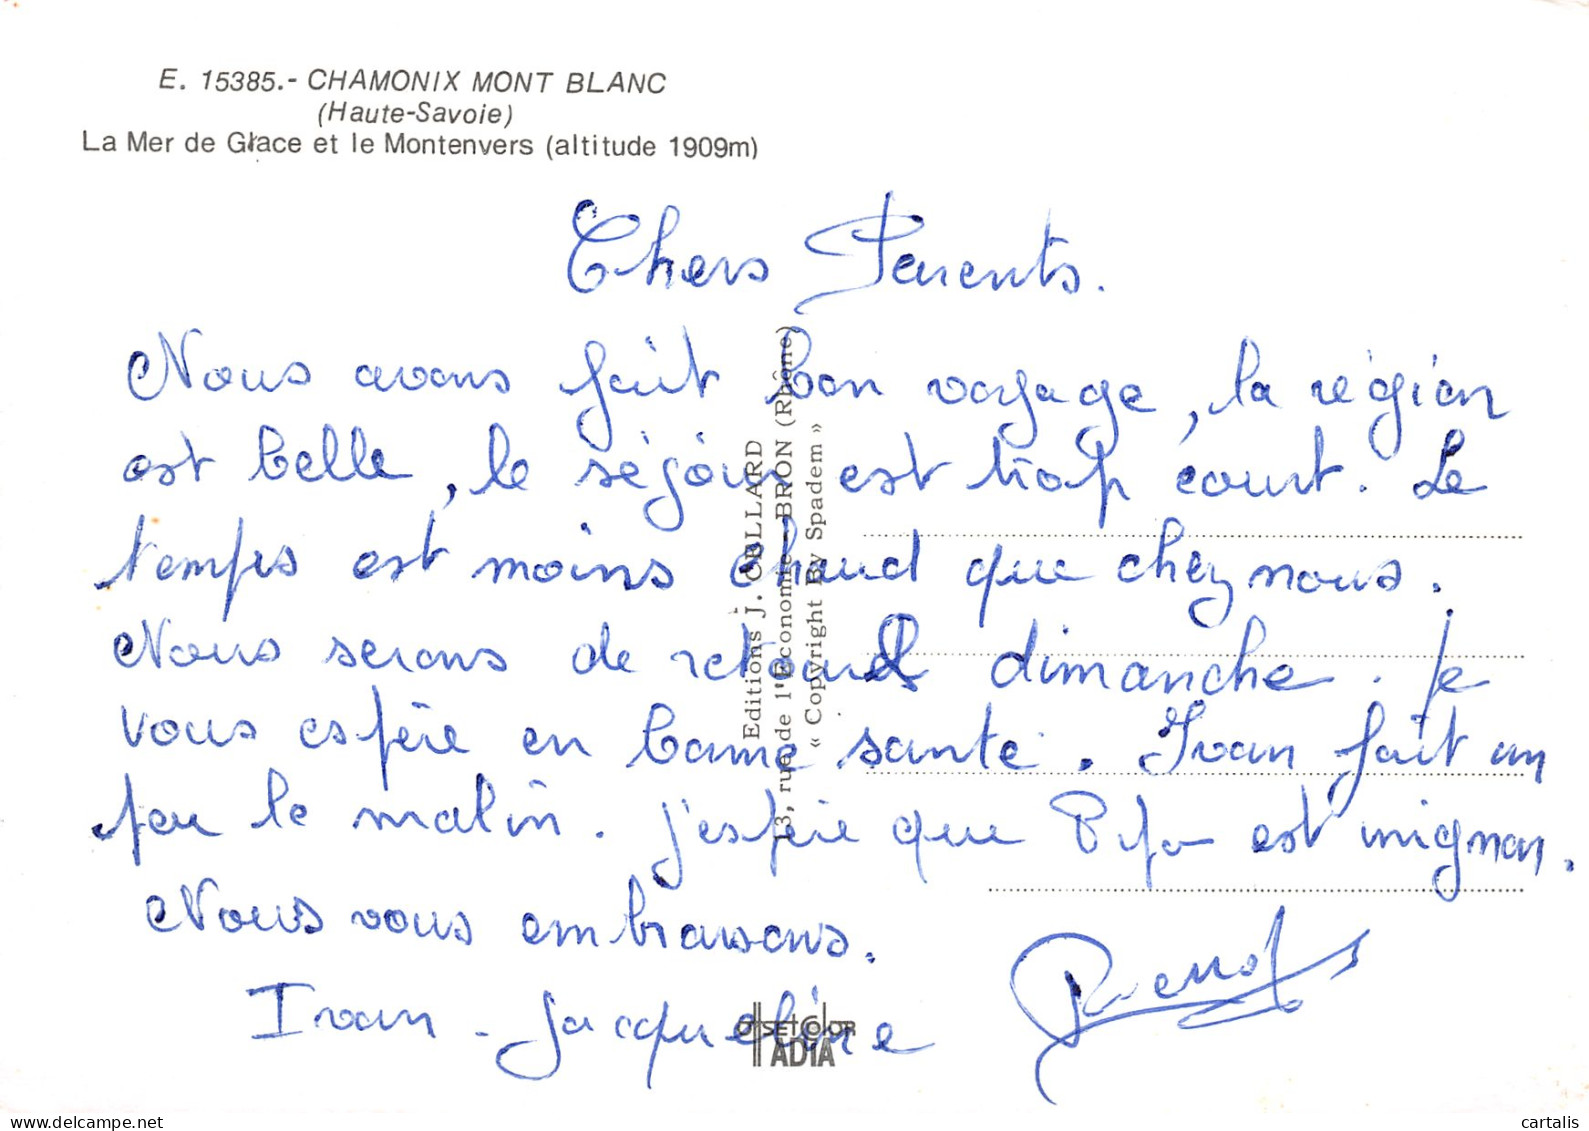 E. 15385.- CHAMONIX MONT BLANC
(Haute-Savoie)
La Mer de Glace et le Montenvers (altitude 1909m)
Chers Parents.
Nous avons fait bon voyage, la région
est belle, le séjour est trop court. Le
temps est moins chaud que chez nous.
Nous serons de retour dimanche. Je
vous espère en bonne santé. Ivan fait un
peu le malin. J'espère que Pifo est mignon.
Nous vous embrassons.
Ivan - Jacqueline
Editions J. CELLARD
13, rue de l'Economie - BRON (Rhône)
« Copyright By Spadem »
OFFSET COLOR
ADIA
cartalis